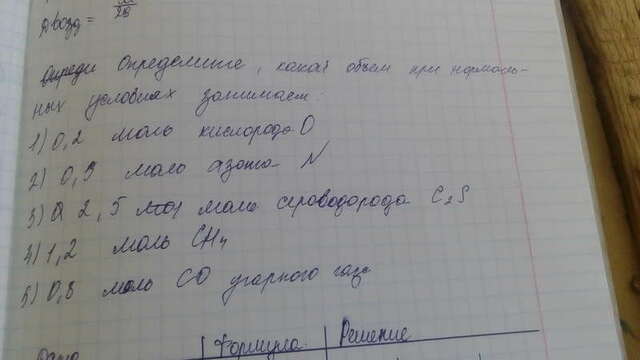 Dвозд = M/29
Определите, какой объем при нормаль-
ных условиях занимает:
1) 0,2 моль кислорода O
2) 0,5 моль азота N
3) 2,5 моль сероводорода C₂S
4) 1,2 моль CH₄
5) 0,8 моль CO угарного газа
Дано Формула Решение